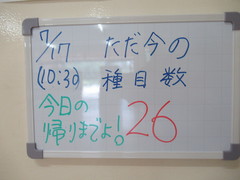 7/17 ただ今の
(10:30) 種目数
今日の
帰りまでよ! 26